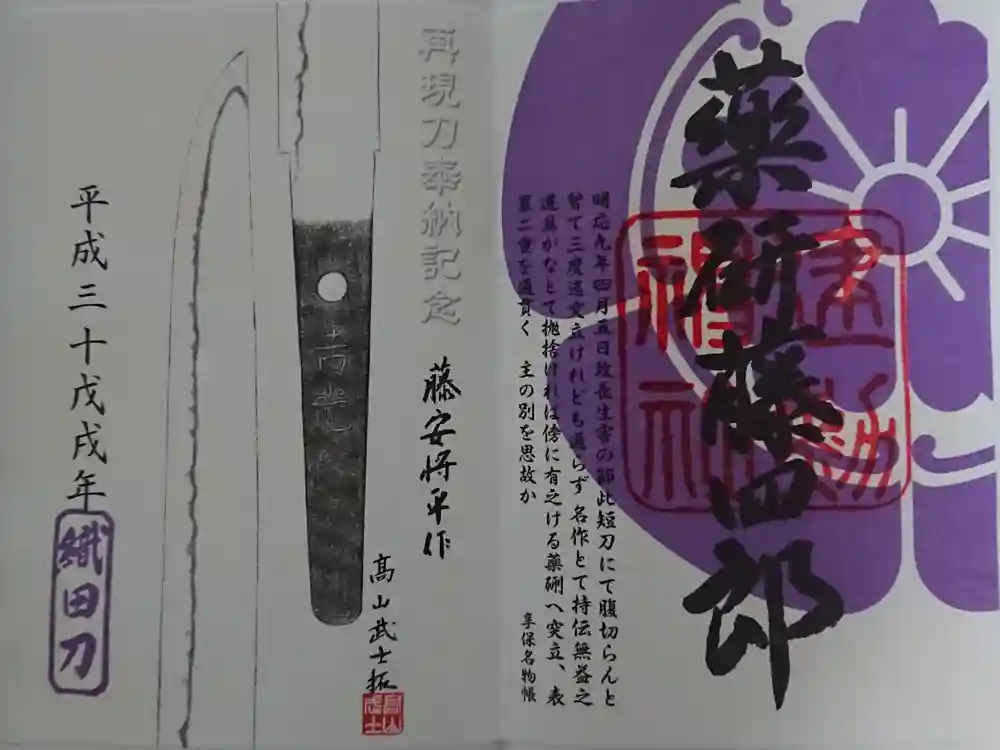 薬研藤四郎
建勲神社
明応九年四月五日政長生害の節此短刀にて腹切らんと
曽て三度迄突立けれども通らず名作とて持伝無益之
道具かなとて抛捨ければ傍に有之ける薬研へ突立、表
裏二重を通貫く　主の別を思故か
享保名物帳
再現刀奉納記念
藤安将平作
吉光
髙山武士拓
髙山武士
平成三十戊戌年
織田刀